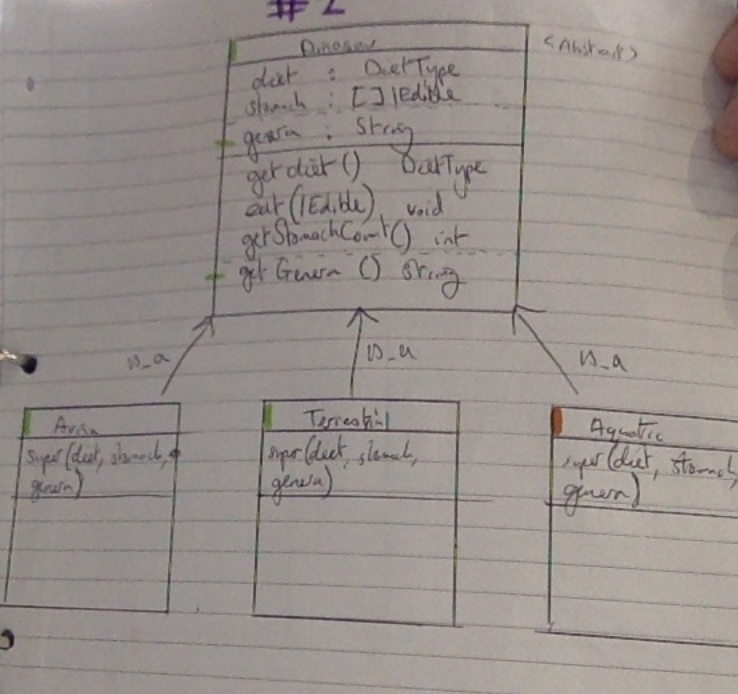 #2
Dinosaur
<Abstract>
diet : DietType
stomach : [] IEdible
genera : String
get diet () DietType
eat (IEdible) void
getStomachCount() int
get Genera () String
is_a
is_a
is_a
Avian
super(diet, stomach,
genera)
Terrestrial
super(diet, stomach,
genera)
Aquatic
super(diet, stomach,
genera)